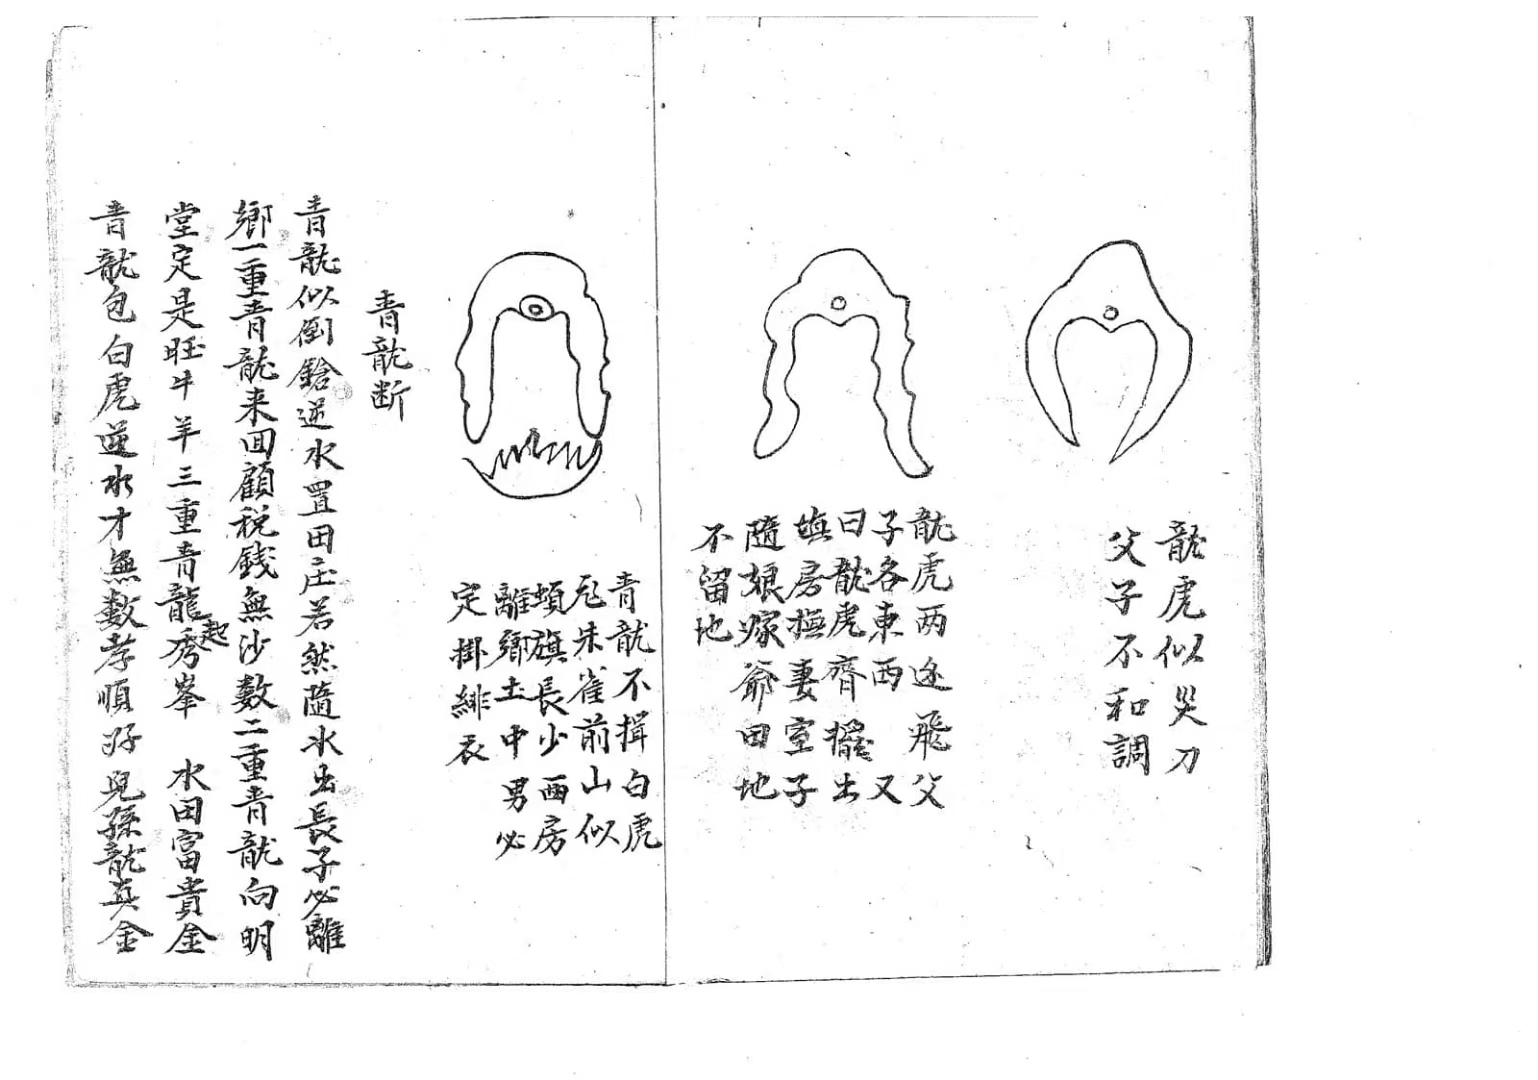 龍虎似哭刀
父子不和調
龍虎两边飛父
子各東西又
曰龍虎齊擺出
填房撫妻室子
隨娘嫁爺田地
不留地
青龍不揖白虎
朱雀前山似
旗長少西房
離鄉土中男必
定掛緋衣
青龍断
青龍似倒鎗逆水置田庄若然隨水出長子必離
鄉一重青龍来回顧税銭無沙數二重青龍向明
堂定是旺牛羊三重青龍起秀峯水田富貴全
青龍包白虎逆水才無數孝順好兒孫龍真金